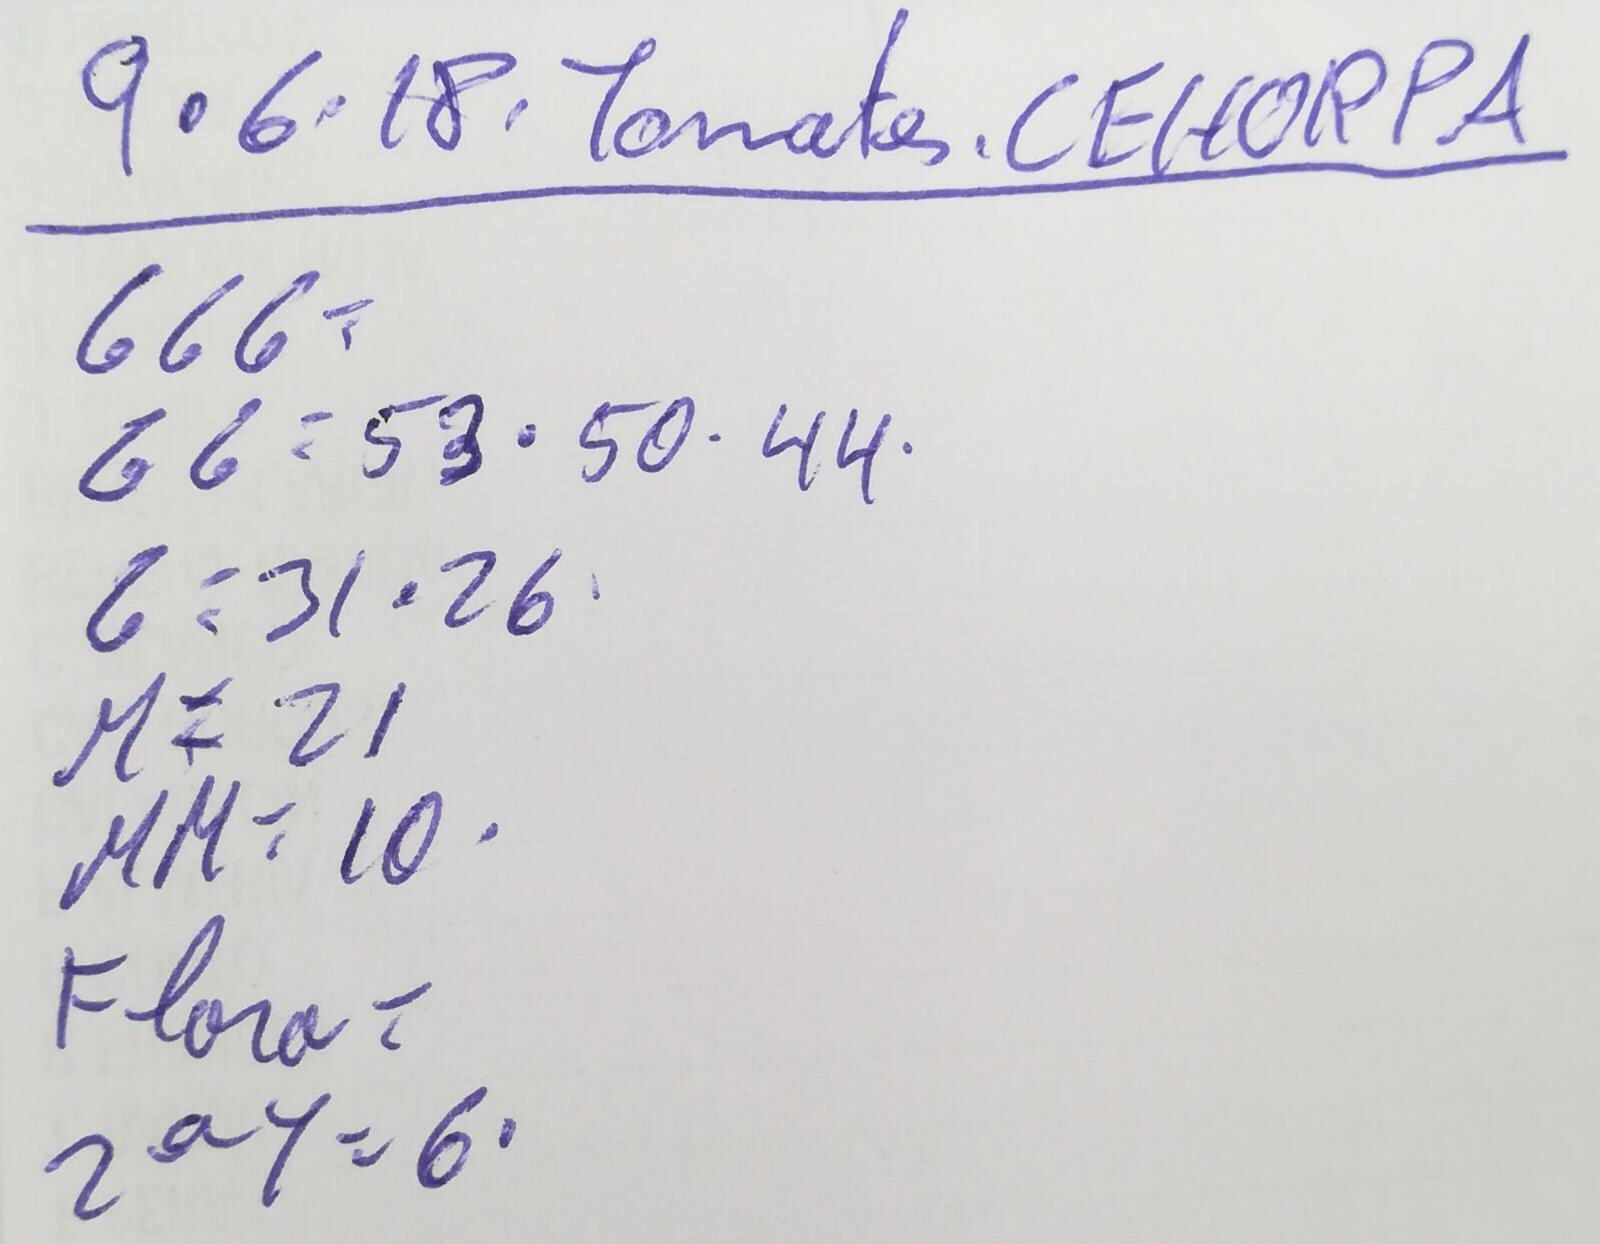 9.6.18. Tomates. CEHORPA
GGG=
GG=53.50.44.
G=31.26.
M=21
MM=10.
Flora=
2ªY=6.